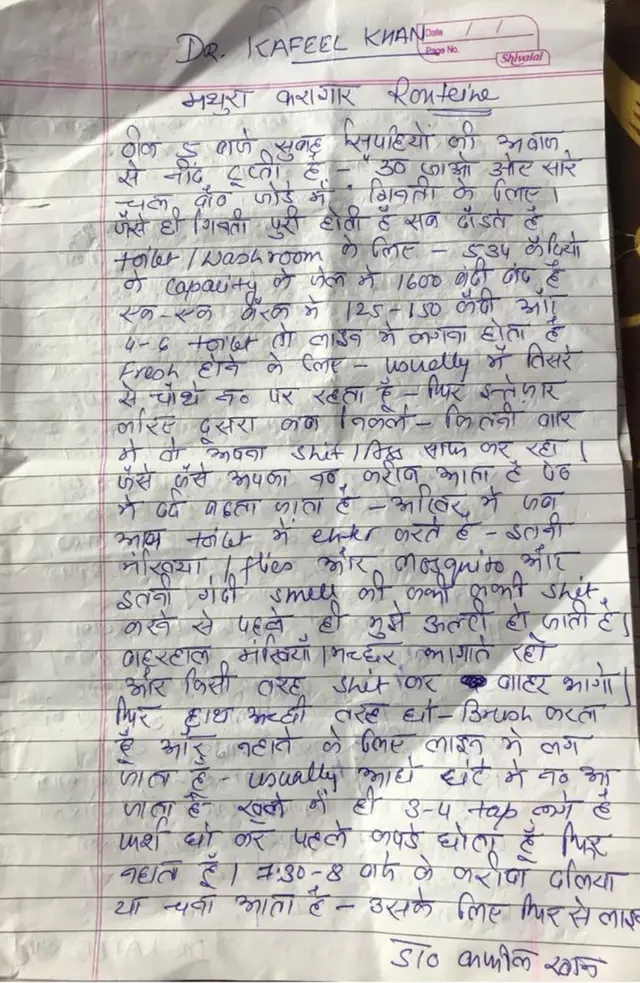 DR. KAFEEL KHAN
Date / /
Page No.
Shivalal
मथुरा कारागार Routeine
ठीक 5 बजे सुबह सिपाहियों की आवाज
से नींद टूटती है - "उठ जाओ और सारे
चलो बैठ जोड़े में" गिनती के लिए।
जैसे ही गिनती पुरी होती है सब दौडते है
toilet / washroom के लिए - 534 कैदियो
के capacity के जेल मे 1600 बंदी बंद है
एक-एक बैरक मे 125-150 कैदी और
4-6 toilet तो लाइन मे लगना होता है
Fresh होने के लिए - usually मैं तिसरे
से चौथे न० पर रहता हूँ - फिर इन्तेजार
करिए दूसरा कब निकले - कितनी बार
मे वो अपना shit / साफ कर रहा।
जैसे जैसे आपका न० करीब आता है पेट
मे दर्द बढता जाता है - आखिर मे जब
आप toilet में enter करते है - इतनी
मंखिया / flies और mosquito और
इतनी गंदी smell की कभी कभी shit
करने से पहले ही मुझे उल्टी हो जाती है।
बहरहाल मंखियाँ / मच्छर भागाते रहो
और किसी तरह shit कर बाहर भागो।
फिर हाथ अच्छी तरह धो - Brush करता
हूँ और नहाने के लिए लाइन मे लग
जाता है - usually आधे घंटे मे न० आ
जाता है खुले में ही 3-4 tap लगे है
फर्श धो कर पहले कपडे धोता हूँ फिर
नहाता हूँ। 7:30-8 बजे के करीब दलिया
या चना आता है - उसके लिए फिर से लाइन
डा० कफील खान